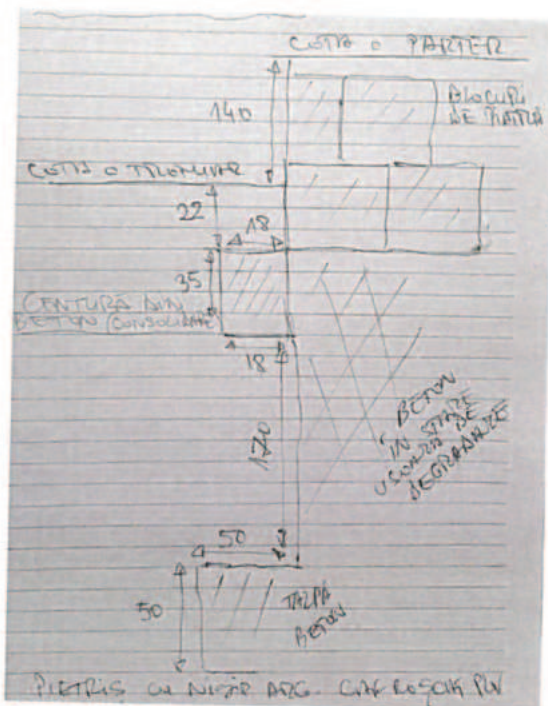 COTA 0 PARTER
BLOCURI
DE PIATRA
140
COTA 0 TROTUAR
22
18
35
CENTURĂ DIN
BETON (CONSOLIDARE)
18
170
BETON
IN STARE
USOARĂ DE
DEGRADARE
50
50
TALPĂ
BETON
PIETRIS CU NISIP ARG.